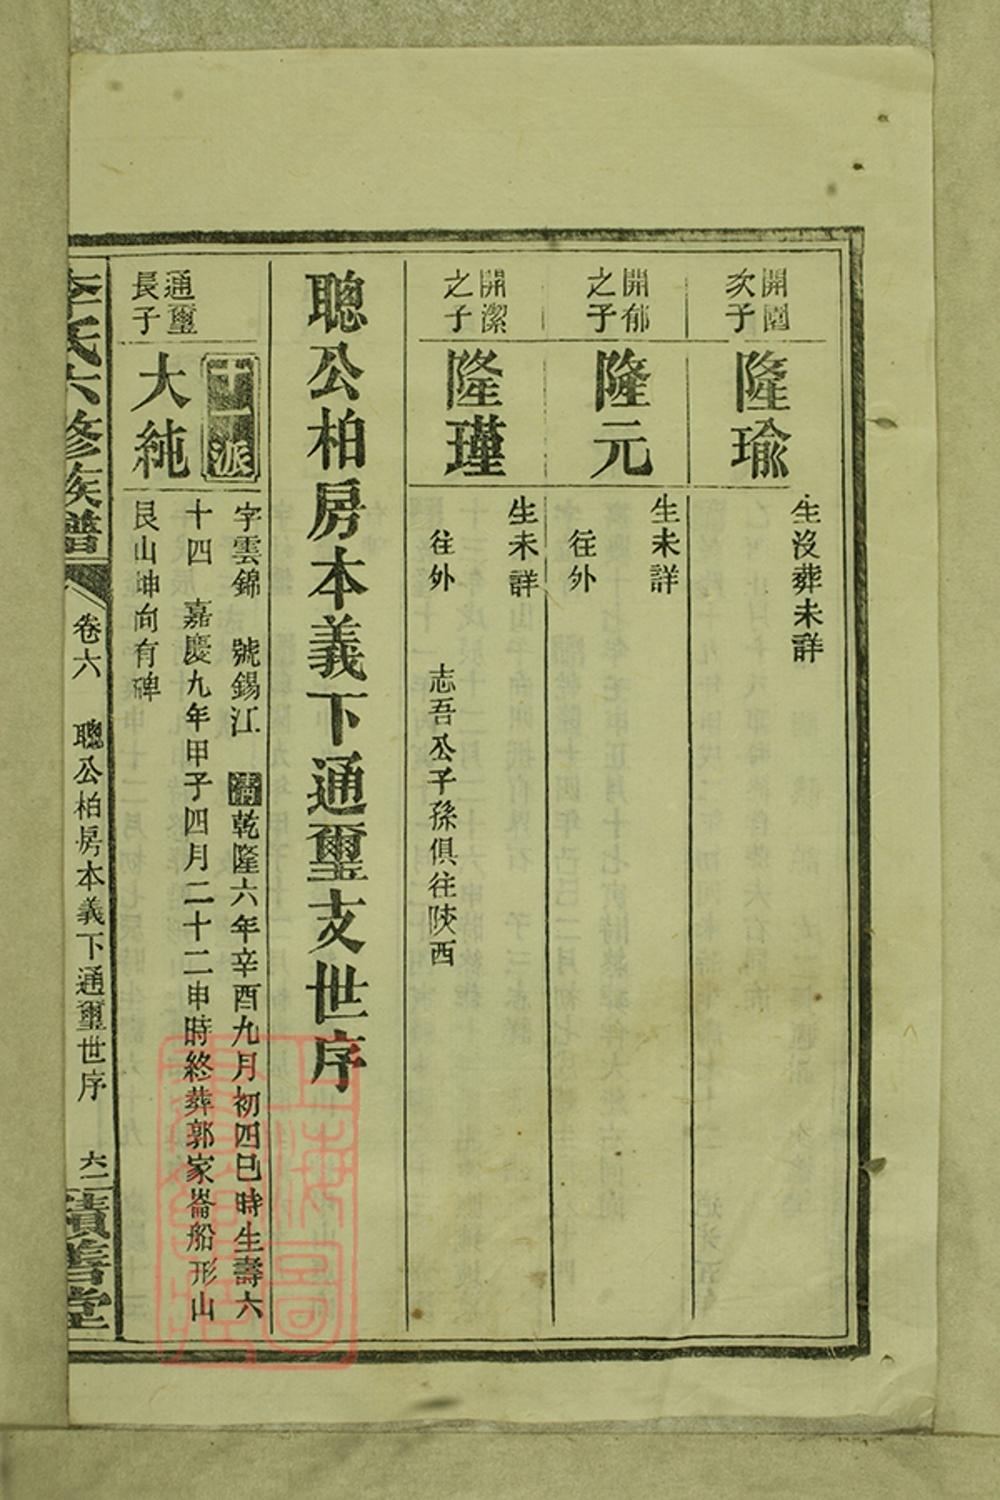 開園
次子
隆瑜
生沒葬未詳
開郁
之子
隆元
生未詳
往外
開潔
之子
隆瑾
生未詳
往外 志吾公子孫俱往陝西
聰公柏房本義下通璽支世序
十一派
通璽
長子
大純
字雲錦 號錫江 清乾隆六年辛酉九月初四巳時生壽六
十四 嘉慶九年甲子四月二十二申時終葬郭家崙船形山
艮山坤向有碑
李氏六修族譜
卷六 聰公柏房本義下通璽世序 六二
積善堂
上海圖